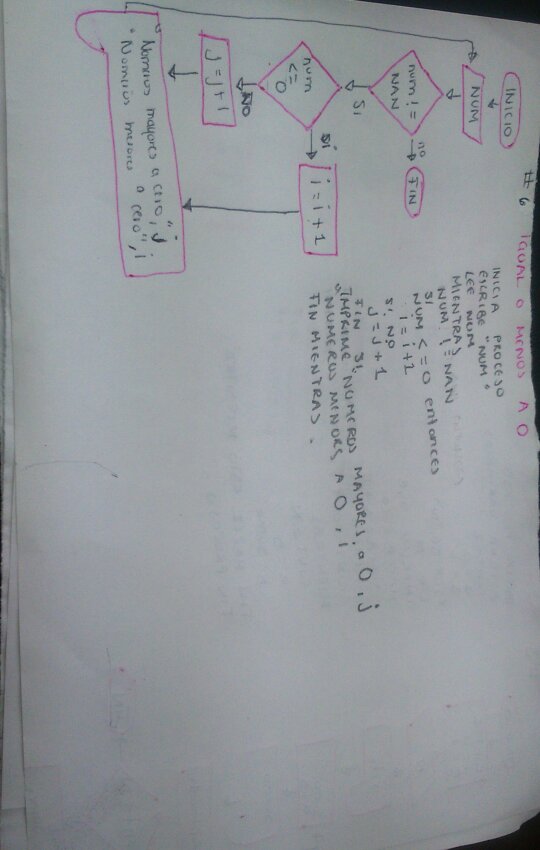 #6 IGUAL O MENOS A 0
INICIO
NUM
num !=
NAN
no
FIN
Si
num
<=
0
Si
i = i + 1
NO
j = j + 1
"Numeros mayores a cero", j
"Numeros menores a cero", i
INICIA PROCESO
ESCRIBE "NUM"
LEE NUM
MIENTRAS
NUM != NAN
SI
NUM <= 0 entonces
i = i+1
SI NO
j = j + 1
FIN SI
IMPRIME "NUMEROS MAYORES, a 0, j
"NUMEROS MENORS A 0, i
FIN MIENTRAS.